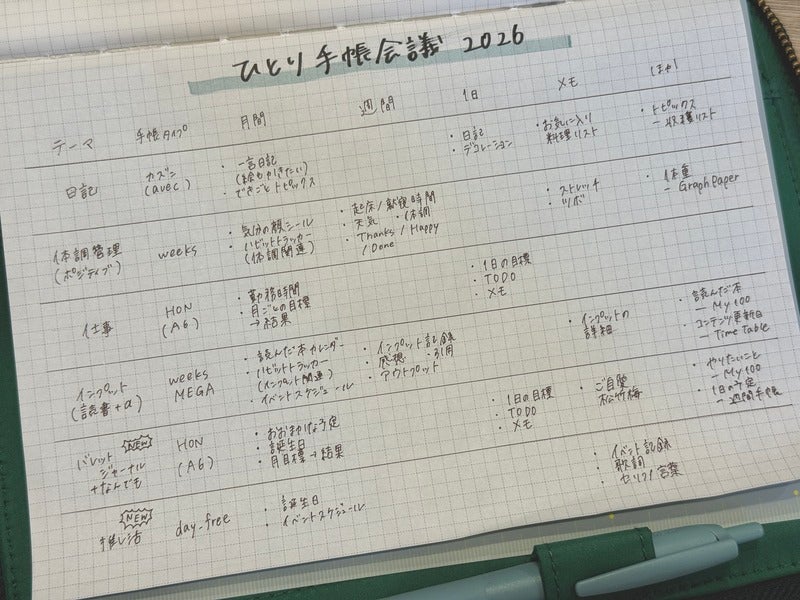 ひとり手帳会議 2026
テーマ 手帳タイプ 月間 週間 1日 メモ ほか
日記
カズン
(avec)
・一言日記
(絵もかきたい)
・できごとトピックス
・日記
・デコレーション
・お気に入り
料理リスト
・トピックス
- 収穫リスト
体調管理
(ポジティブ)
weeks
・気分の顔シール
・ハビットトラッカー
(体調関連)
・起床/就寝時間
・天気 ・体調
・Thanks / Happy
/ Done
・ストレッチ
・ツボ
・体重
- Graph Paper
仕事
HON
(A6)
・勤務時間
・月ごとの目標
→結果
・1日の目標
・TODO
・メモ
インプット
(読書+α)
weeks
MEGA
・読んだ本カレンダー
・ハビットトラッカー
(インプット関連)
・イベントスケジュール
・インプット記録
・感想 ・引用
・アウトプット
・インプットの
詳細
・読んだ本
- My 100
・コンテンツ更新日
- Time Table
バレット NEW
ジャーナル
+なんでも
HON
(A6)
・おおまかな予定
・誕生日
・月目標→結果
・1日の目標
・TODO
・メモ
・ご自愛
松竹梅
・やりたいこと
- My 100
・1日の予定
- 週間手帳
NEW
推し活
day-free
・誕生日
・イベントスケジュール
・イベント記録
・歌詞
・セリフ/言葉